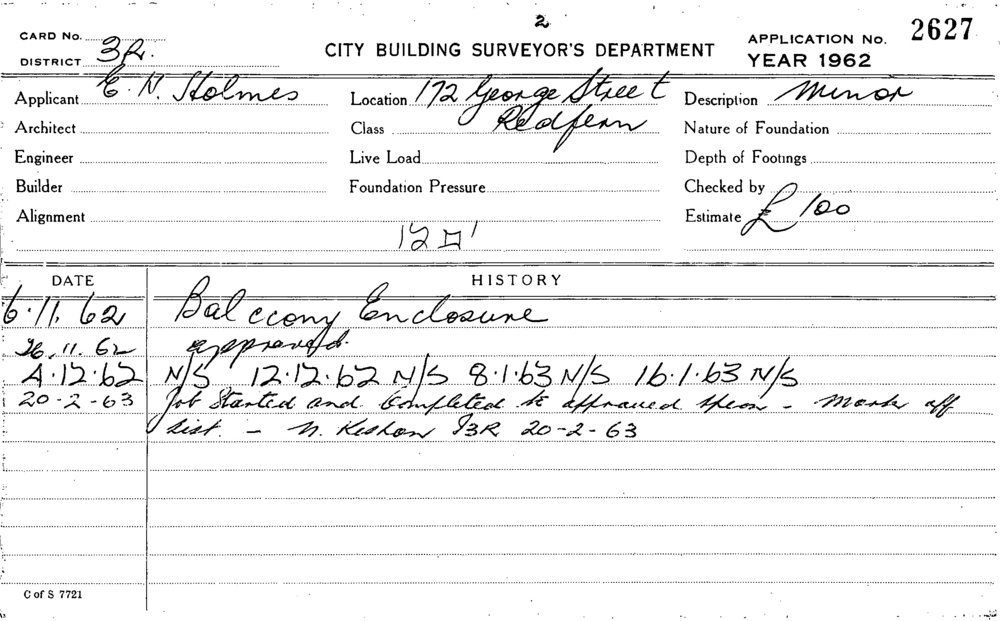 2
CARD No.
DISTRICT 3R.
CITY BUILDING SURVEYOR'S DEPARTMENT
APPLICATION No. 2627
YEAR 1962
Applicant E. N. Holmes Location 172 George Street Description Minor
Architect Class Redfern Nature of Foundation
Engineer Live Load Depth of Footings
Builder Foundation Pressure Checked by
Alignment Estimate £100
12 □'
DATE HISTORY
6.11.62 Balccony Enclosure
26.11.62 approved.
4.12.62 N/S 12.12.62 N/S 8.1.63 N/S 16.1.63 N/S
20-2-63 Job Started and Completed to approved - Mark off
List. - N. 20-2-63
C of S 7721